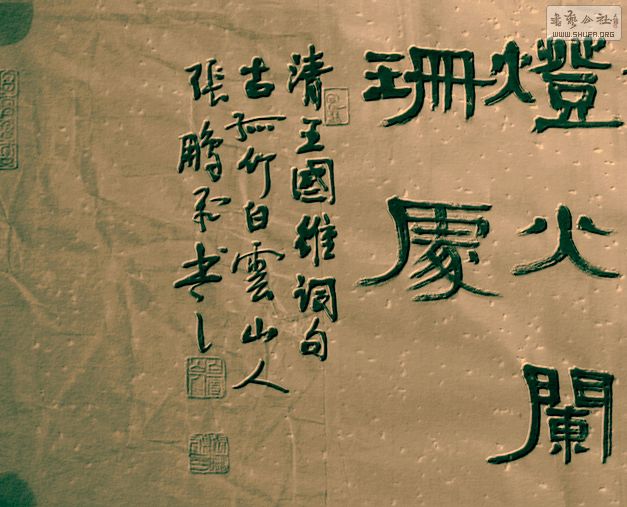 燈火闌
珊處
清王國維詞句
古孤竹白雲山人
張鵬飛書之
書藝公社
WWW.SHUFA.ORG